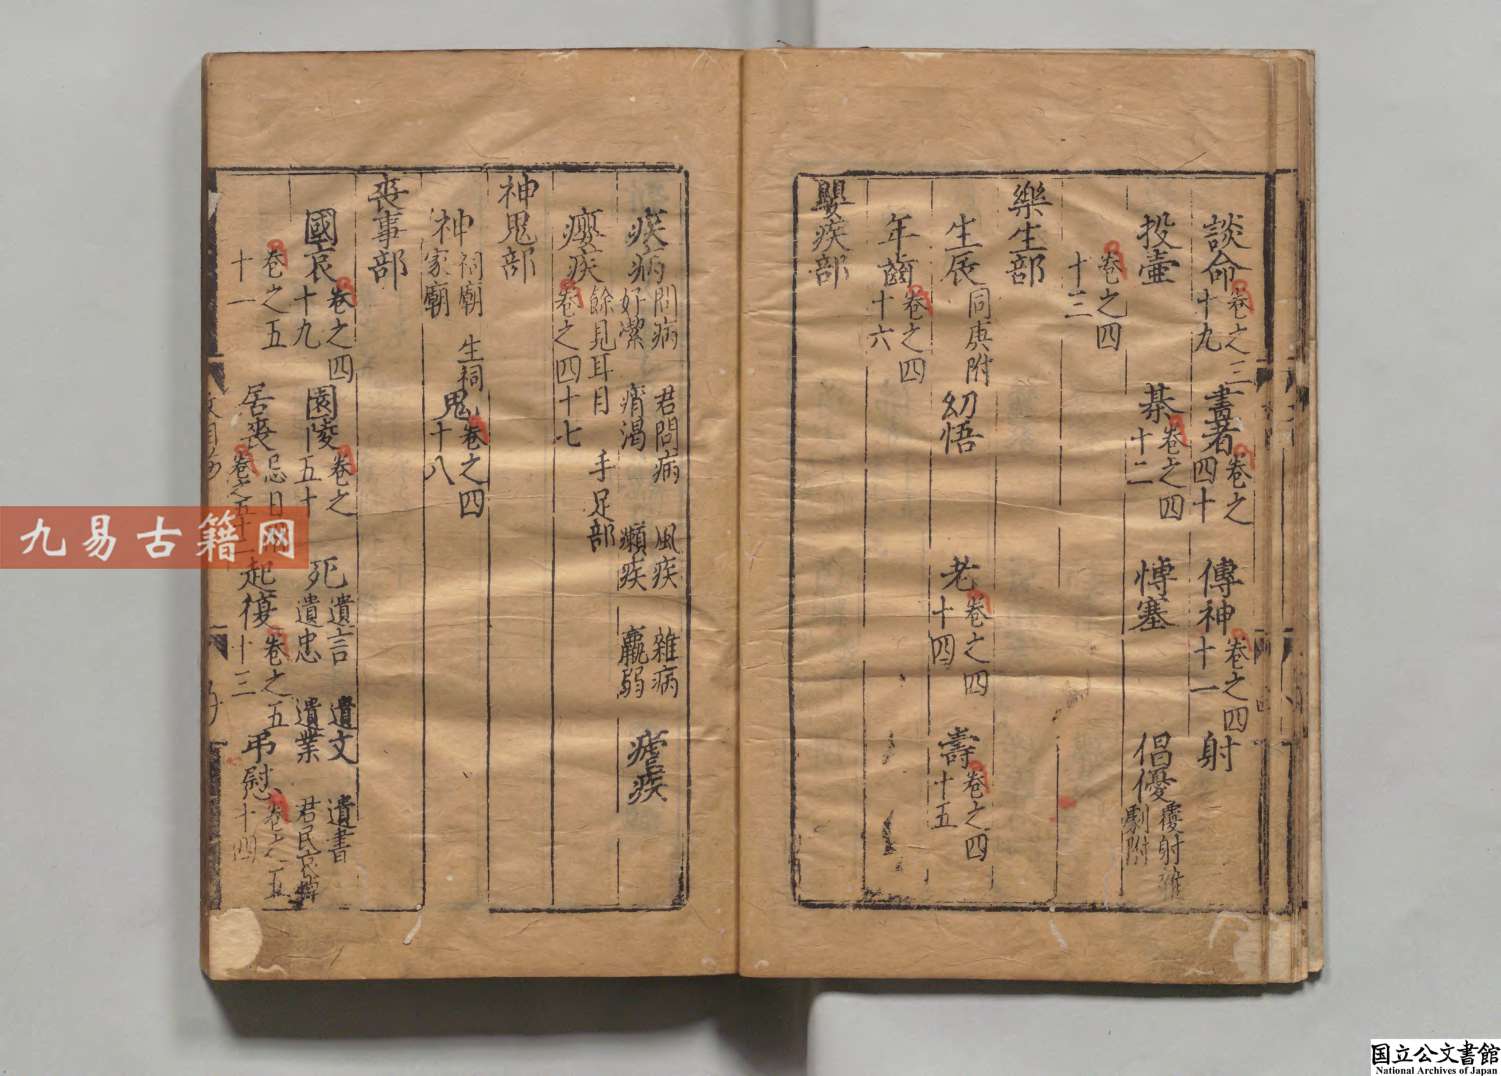 談命卷之三十九 畫者卷之四十 傳神卷之四十一 射
投壷 棊卷之四十二 愽塞 倡優覆射雜劇附
卷之四十三
樂生部
生辰同庚附 㓜悟 老卷之四十四 壽卷之四十五
年齒卷之四十六
嬰疾部
疾病問病 君問病 風疾 雜病 好潔 痟渴 癩疾 羸弱 瘖疾
癭疾餘見耳目手足部卷之四十七
神鬼部
神祠廟 生祠 家廟 鬼卷之四十八
喪事部
國哀卷之四十九 園陵卷之五十 死遺言 遺文 遺書 遺忠 遺業 君民哀悼
卷之五十一 居喪忌日 卷之五十二 起復卷之五十三 弔慰卷之五十四
九易古籍网
国立公文書館
National Archives of Japan